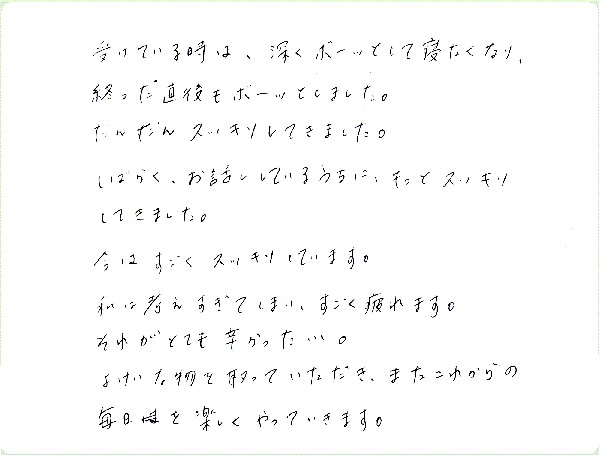 受けている時は、深くボーッとして寝たくなり、
終った直後もボーッとしました。
だんだんスッキリしてきました。
しばらく、お話ししているうちに、もっとスッキリ
してきました。
今はすごくスッキリしています。
私は考えすぎてしまい、すごく疲れます。
それがとても辛かったい。
よけいな物を取っていただき、またこれからの
毎日を楽しくやっていきます。